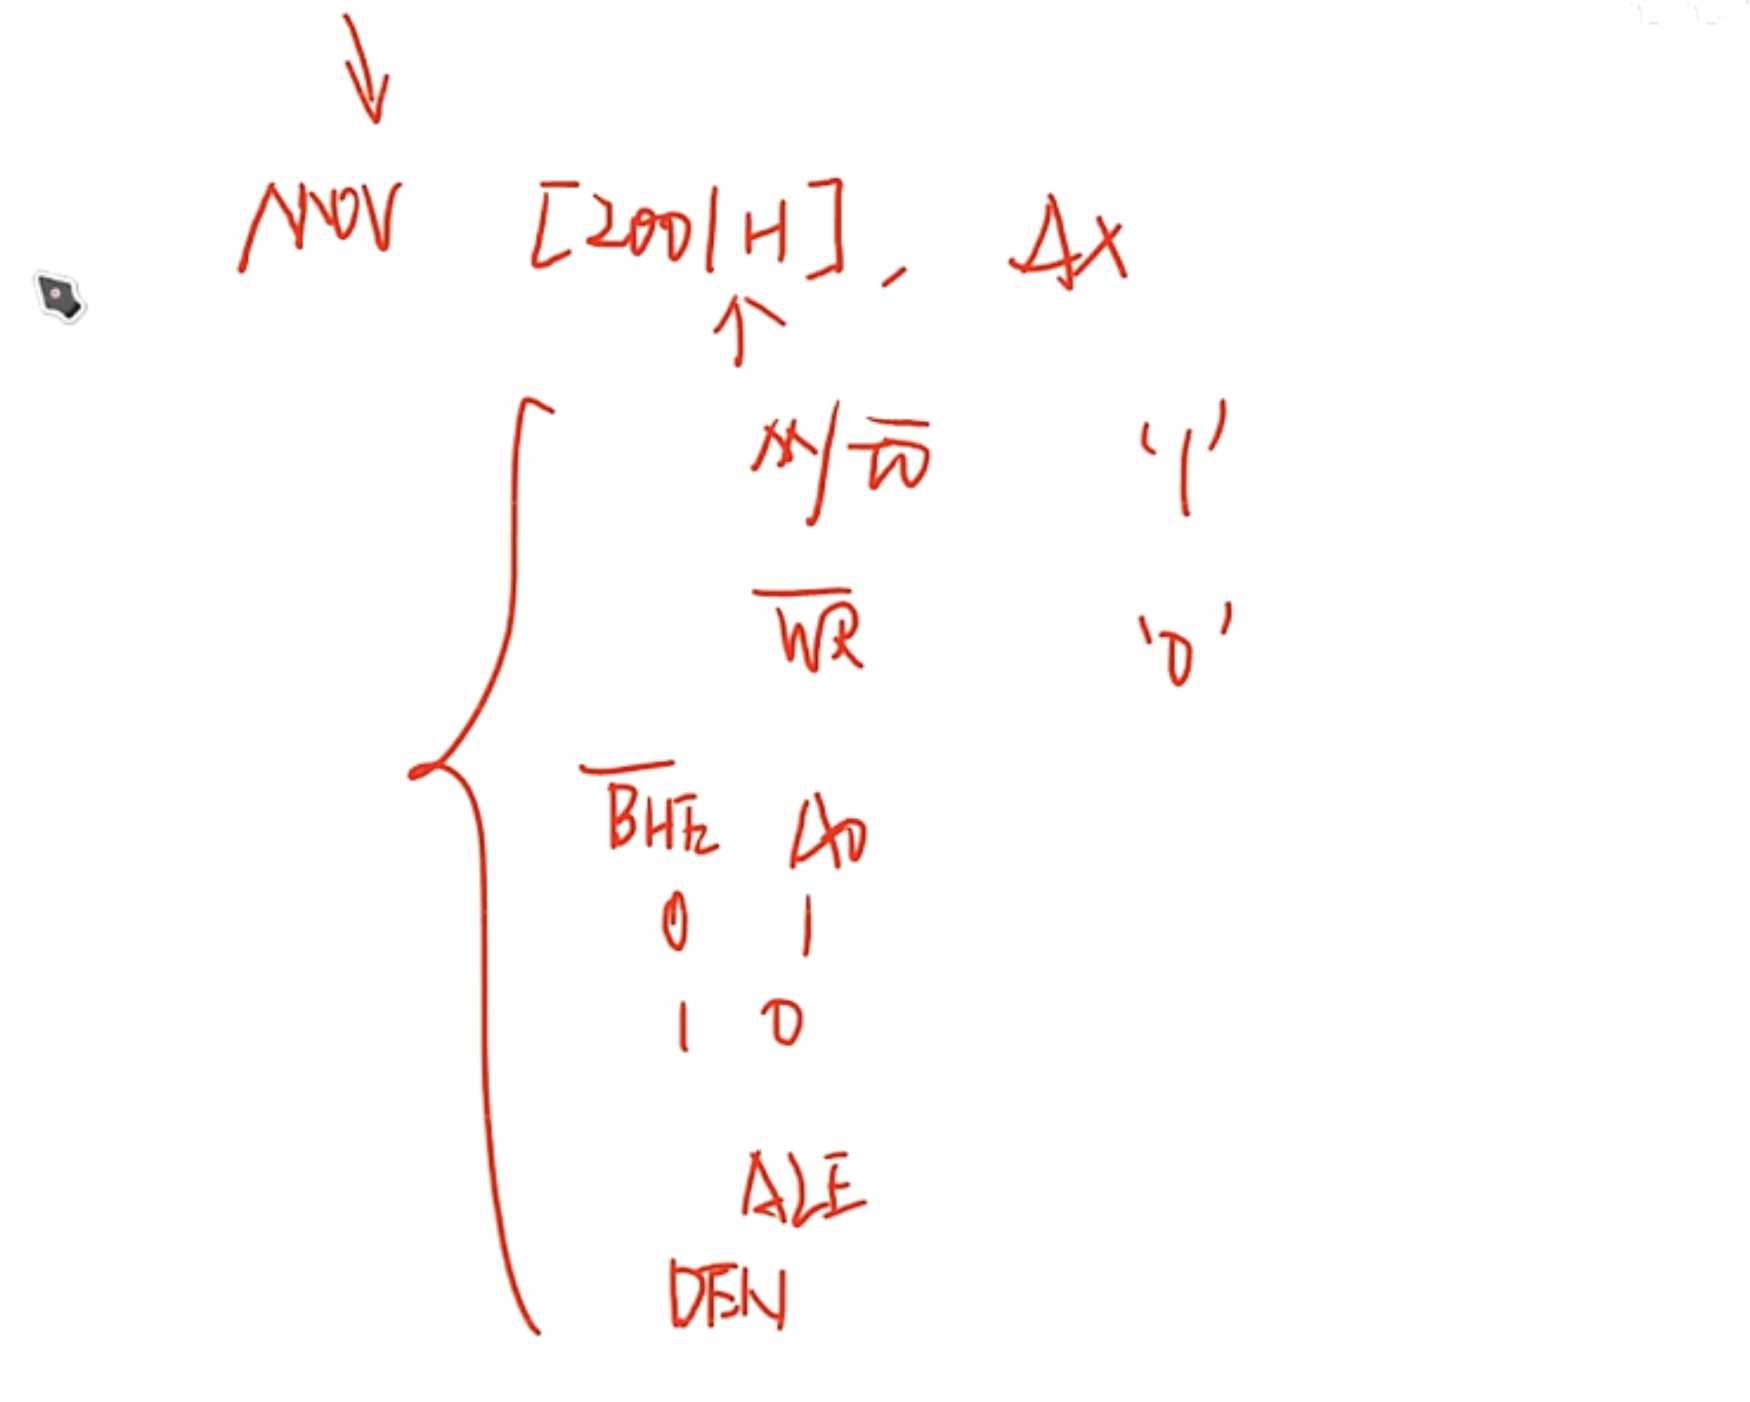 MOV [2001H], AX
M/I̅O̅ '1'
W̅R̅ '0'
B̅H̅E̅ A0
0 1
1 0
ALE
DEN